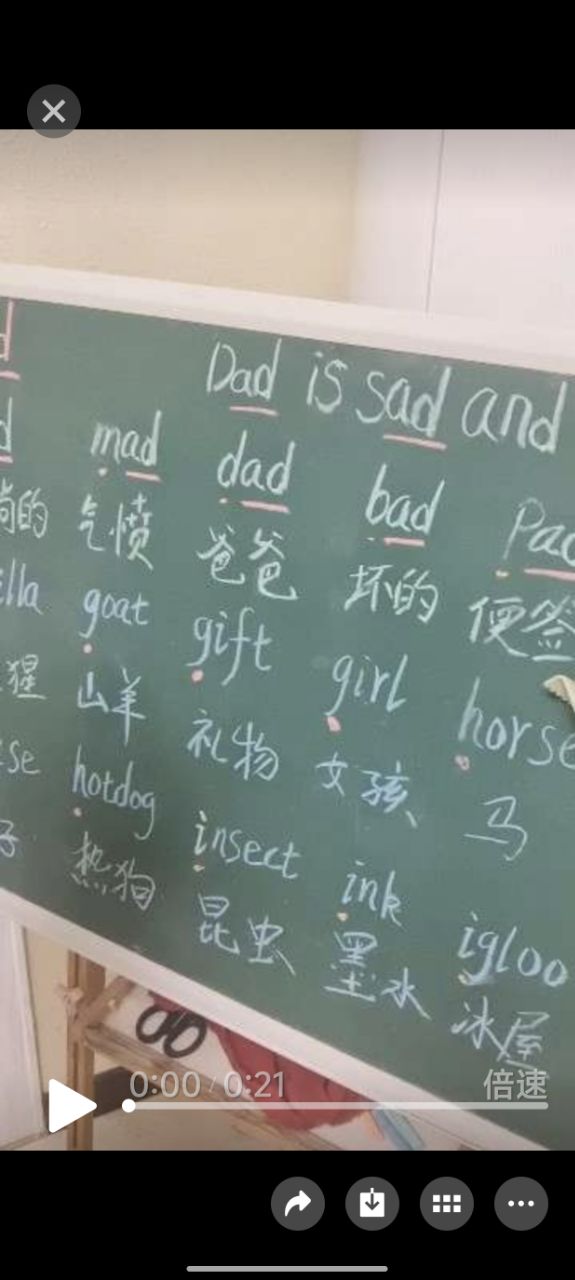 d Dad is sad and
d mad dad bad Pad
尚的 气愤 爸爸 坏的 便签
ella goat gift girl horse
猩 山羊 礼物 女孩 马
se hotdog insect ink igloo
子 热狗 昆虫 墨水 冰屋
0:00 / 0:21 倍速